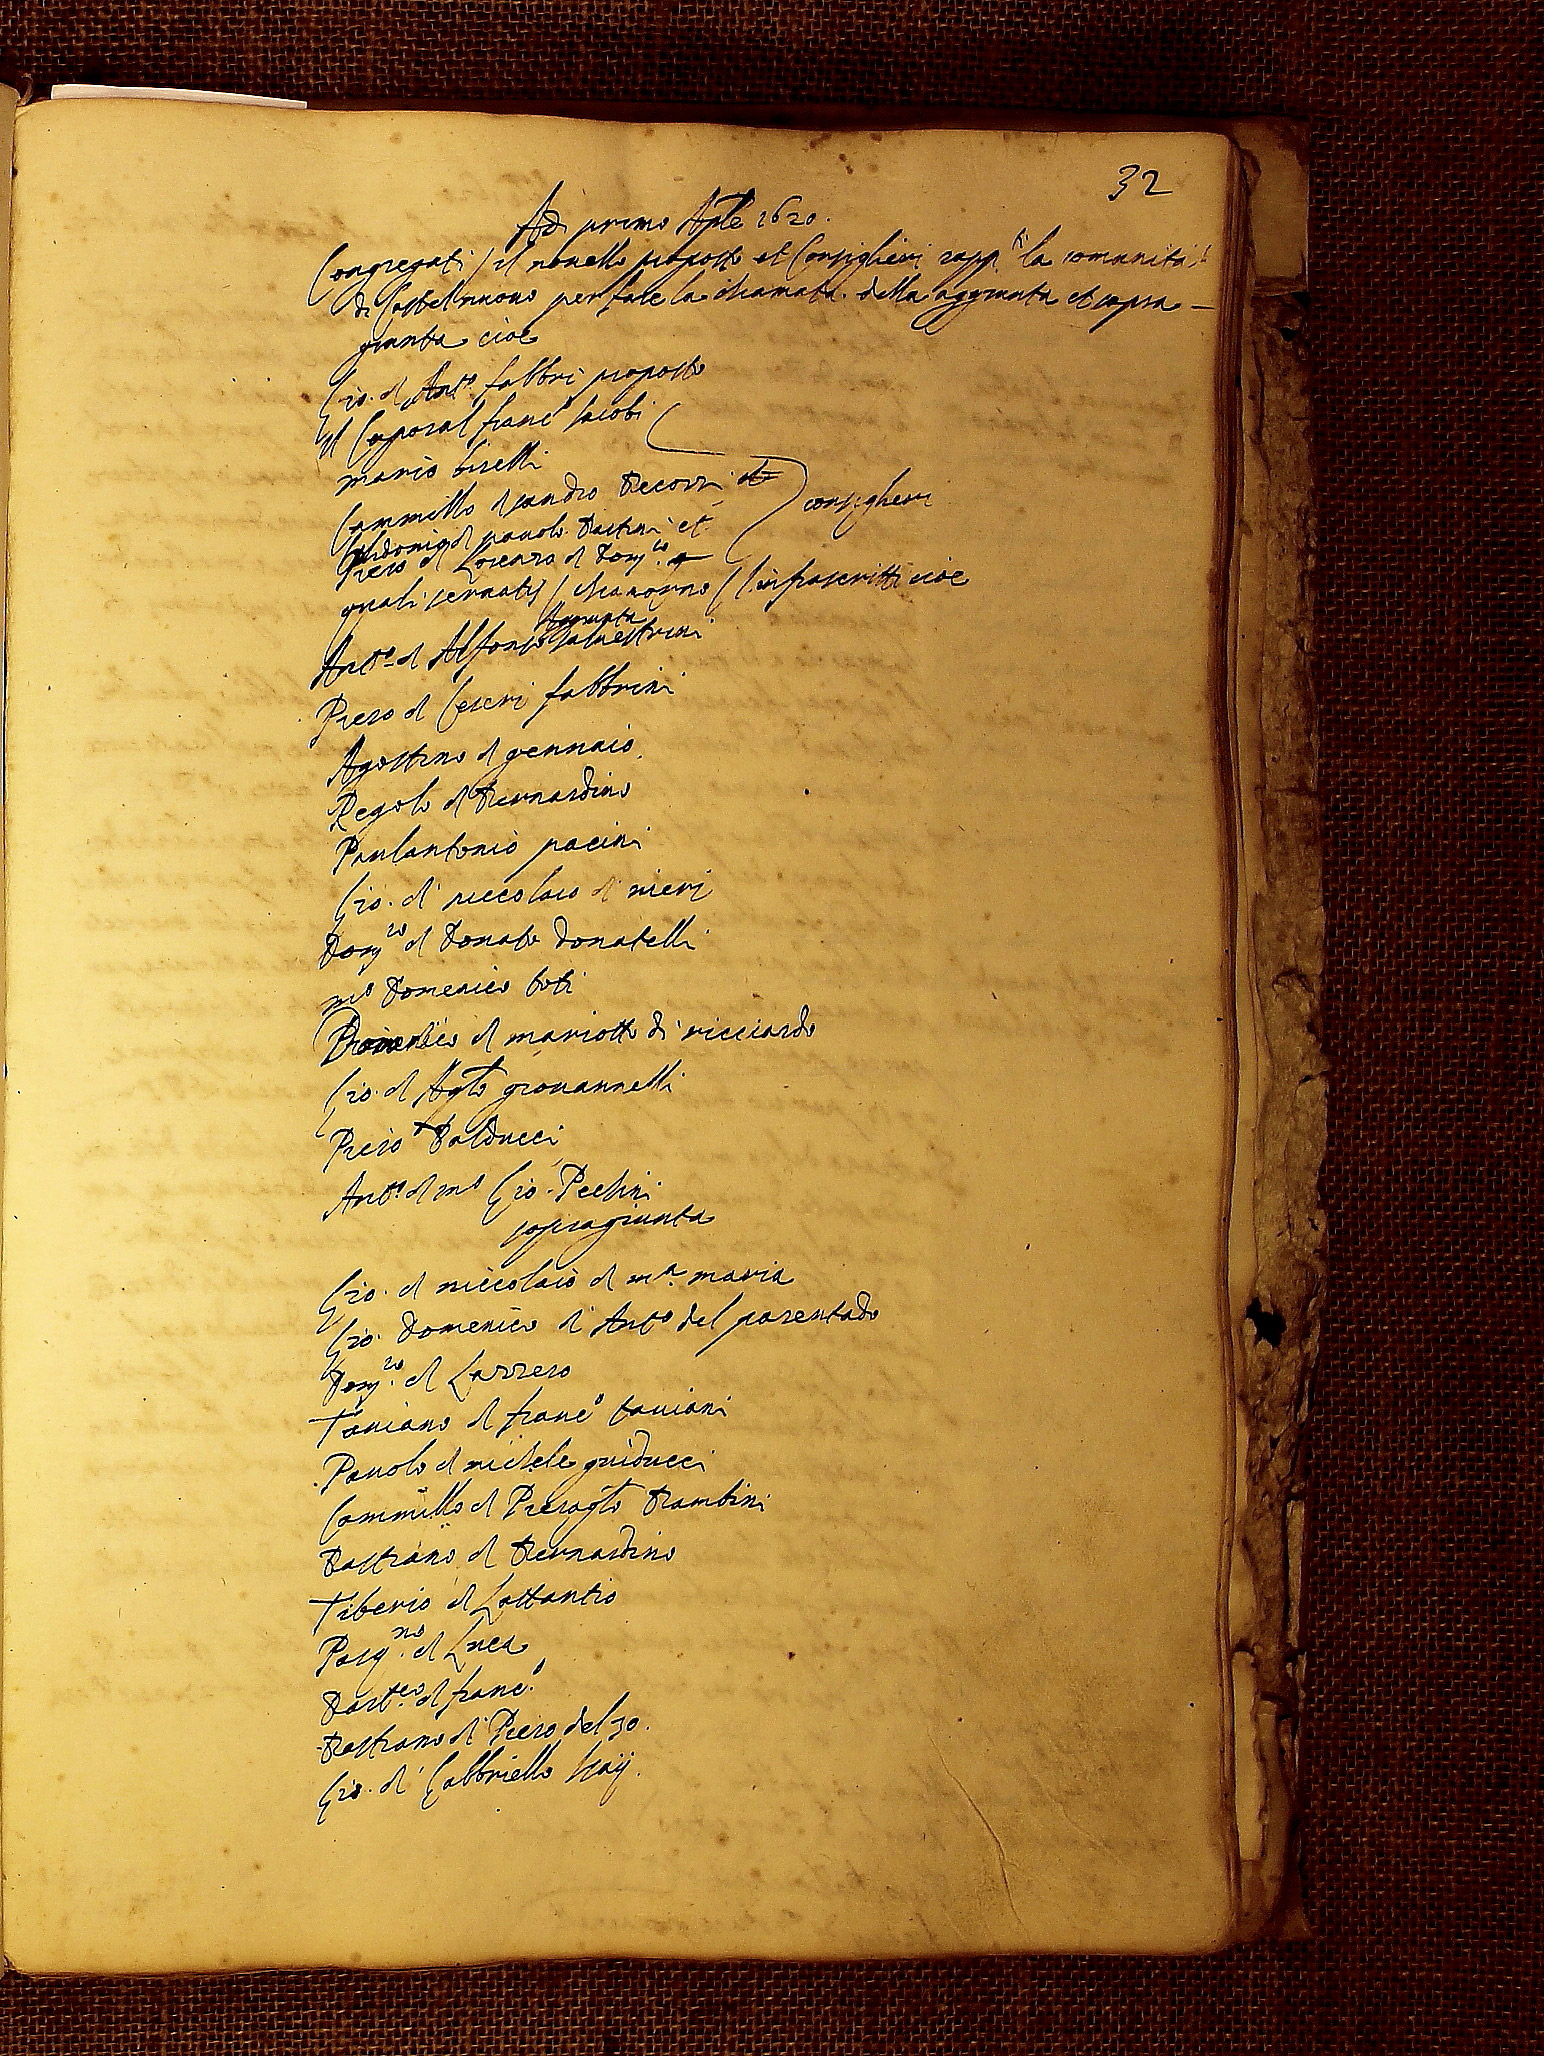 32
Adi primo Aple 1620.
Congregati il novello proposto et Consiglieri rapp.ti la comunità
di Castelnuovo per fare la chiamata della aggiunta et sopra -
giunta cioè
Gio. d Ant.o fabbri proposto
Il Caporal franc.o Iacobi
mario
Cammillo d et
d pauolo Bastini et consiglieri
Piero d Lorenzo d Dom.co
quali chiamorno l'infrascritti cioè
Aggiunta
Ant.o d Alfonso saluestrini
Piero d Ceseri fabbrini
Agostino d gennaio
Regolo d Bernardino
Paulantonio pacini
Gio. d niccolaio d nieri
Dom.co d Donato donatelli
m.o Domenico boti
d mariotto di ricciardo
Gio. d Ag.to giouannelli
Piero Balducci
Ant.o d m.o Gio. Pechini
sopragiunta
Gio. d niccolaio d m.a maria
Gio. Domenico d Ant.o del parentado
Dom.co d Lazzero
Taviano d franc.o taviani
Pauolo d michele guiducci
Cammillo d Pieragto Bambini
Bastiano d Bernardino
Tiberio d Lattantio
Pasq.no d Luca
Bart.eo d franc.o
Bastiano d Piero del
Gio. d Gabbriello